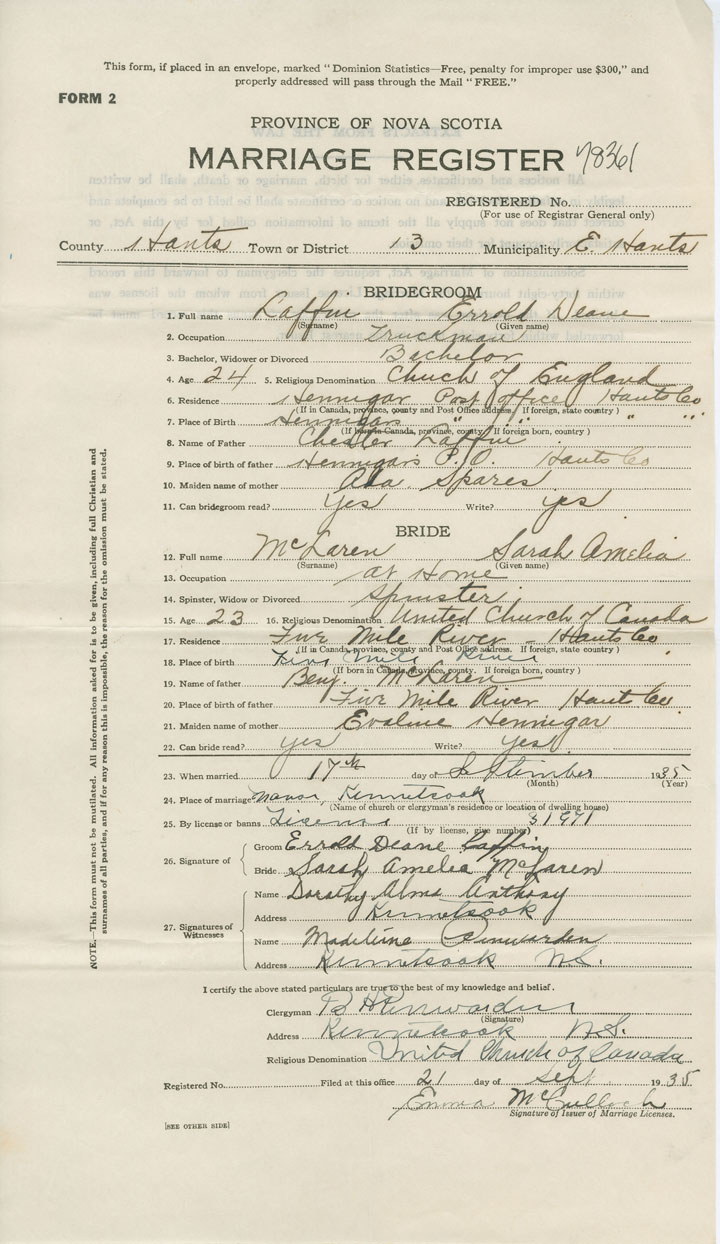 This form, if placed in an envelope, marked "Dominion Statistics—Free, penalty for improper use $300," and
properly addressed will pass through the Mail "FREE."
FORM 2
PROVINCE OF NOVA SCOTIA
MARRIAGE REGISTER 78361
REGISTERED No.
(For use of Registrar General only)
County Hants Town or District 13 Municipality E. Hants
BRIDEGROOM
1. Full name Laffin Errold Deane
(Surname) (Given name)
2. Occupation Truckman
3. Bachelor, Widower or Divorced Bachelor
4. Age 24 5. Religious Denomination Church of England
6. Residence Hennigar Post Office Hants Co
(If in Canada, province, county and Post Office address. If foreign, state country)
7. Place of Birth Hennigars " " " "
(If born in Canada, province, county. If foreign born, country)
8. Name of Father Chester Laffin
9. Place of birth of father Hennigars P.O. Hants Co
10. Maiden name of mother Ada Spares
11. Can bridegroom read? Yes Write? yes
BRIDE
12. Full name McLaren Sarah Amelia
(Surname) (Given name)
13. Occupation at Home
14. Spinster, Widow or Divorced Spinster
15. Age 23 16. Religious Denomination United Church of Canada
17. Residence Five Mile River - Hants Co
(If in Canada, province, county and Post Office address. If foreign, state country)
18. Place of birth Five Mile River
(If born in Canada, province, county. If foreign born, country)
19. Name of father Benj. McLaren
20. Place of birth of father Five Mile River Hants Co.
21. Maiden name of mother Evaline Hennigar
22. Can bride read? yes Write? Yes
23. When married 17th day of September 1935
(Month) (Year)
24. Place of marriage Manse, Kennetcook
(Name of church or clergyman's residence or location of dwelling house)
25. By license or banns License 31971
(If by license, give number)
26. Signature of
Groom Errold Deane Laffin
Bride Sarah Amelia McLaren
27. Signatures of Witnesses
Name Dorothy Alma Anthony
Address Kennetcook
Name Madeline Penwarden
Address Kennetcook N.S.
I certify the above stated particulars are true to the best of my knowledge and belief.
Clergyman B H Penwarden
(Signature)
Address Kennetcook N.S.
Religious Denomination United Church of Canada
Registered No. Filed at this office 21 day of Sept 1935
Emma McCulloch
Signature of Issuer of Marriage Licenses.
[SEE OTHER SIDE]
NOTE.—This form must not be mutilated. All information asked for is to be given, including full Christian and
surnames of all parties, and if for any reason this is impossible, the reason for the omission must be stated.